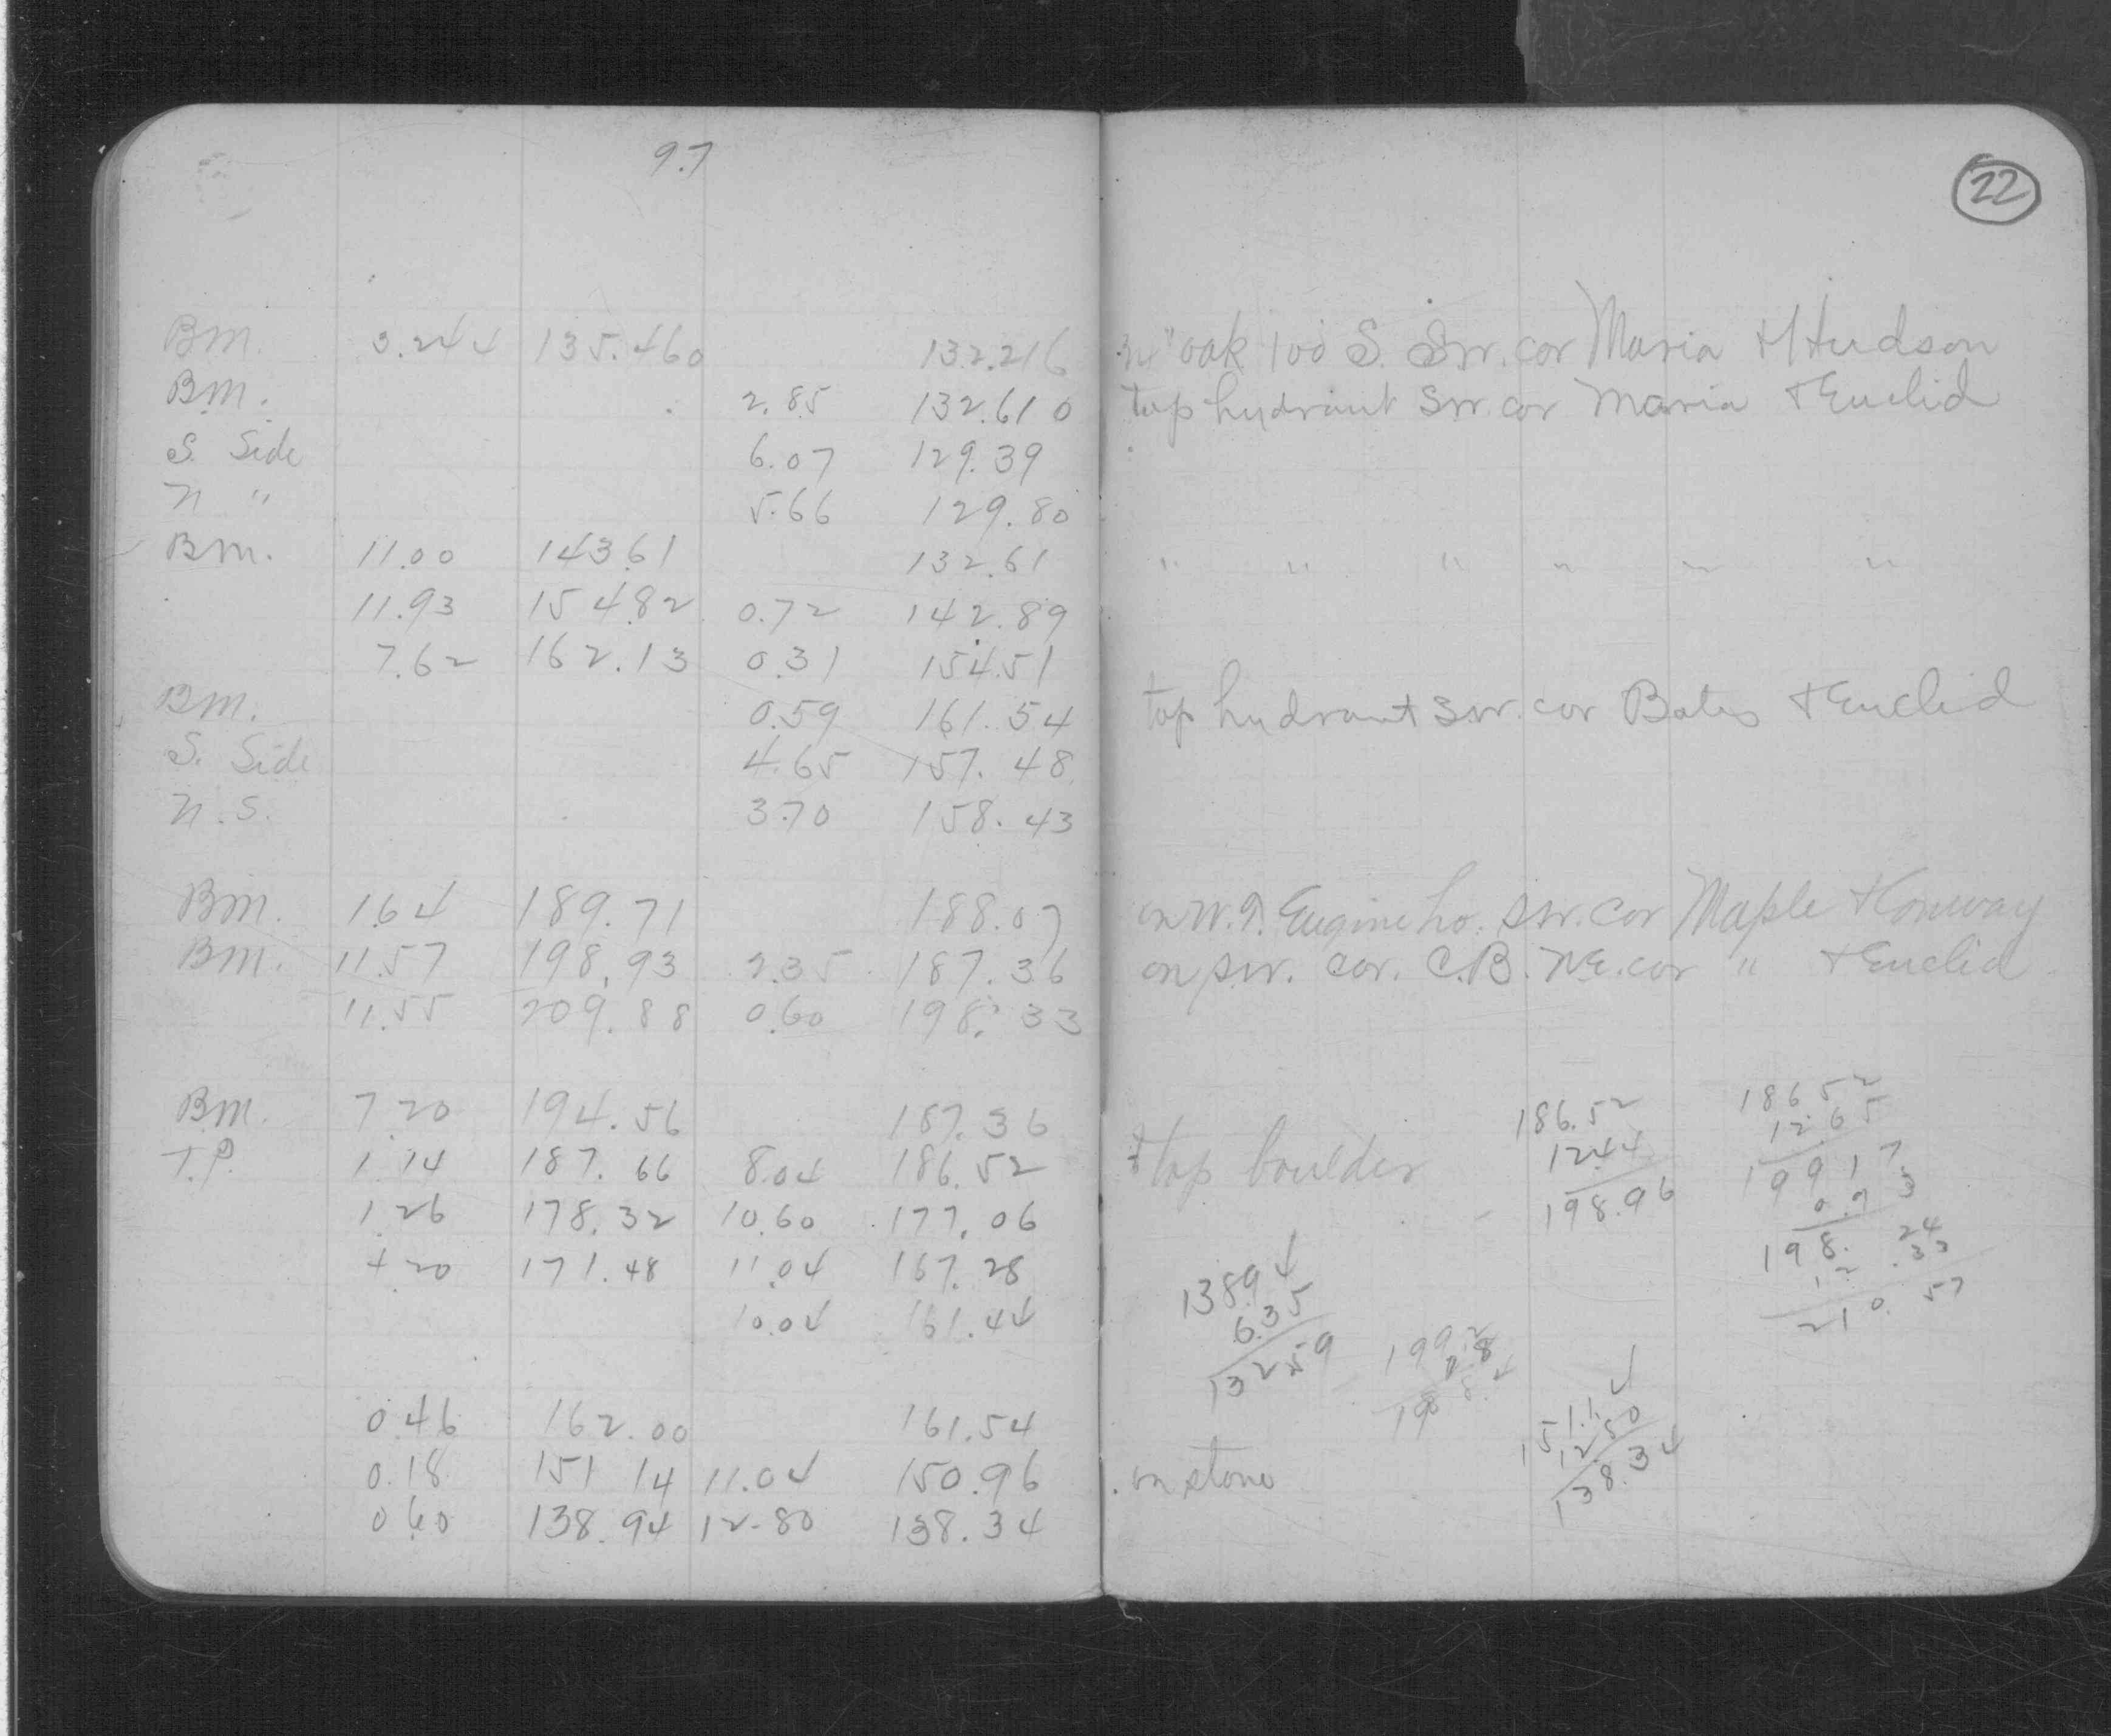 9.7
22
Bm. 3.244 135.460 132.216 24" oak 100 S. SW. cor Maria & Hudson
B.M. 2.85 132.610 top hydrant SW. cor Maria & Euclid
S. Side 6.07 129.39
N " 5.66 129.80
Bm. 11.00 143.61 132.61 " " " " " "
11.93 154.82 0.72 142.89
7.62 162.13 0.31 154.51
Bm. 0.59 161.54 top hydrant SW. cor Bates & Euclid
S. Side 4.65 157.48
N.S. 3.70 158.43
Bm. 1.64 189.71 188.07 on W.T. Engine ho. SW. cor Maple & Conway
Bm. 11.57 198.93 2.35 187.36 on SW. cor. C.B. NE. cor " & Euclid
11.55 209.88 0.60 198.33
Bm. 7.20 194.56 187.36
T.P. 1.14 187.66 8.04 186.52 top boulder
1.26 178.32 10.60 177.06
4.20 171.48 11.04 167.28
10.04 161.44
0.46 162.00 161.54
0.18 151.14 11.04 150.96 on stone
0.60 138.94 12.80 138.34
186.52
12.44
198.96
186.52
12.65
199.17
0.93
198.24
210.57
138.94
6.35
132.59
138.34